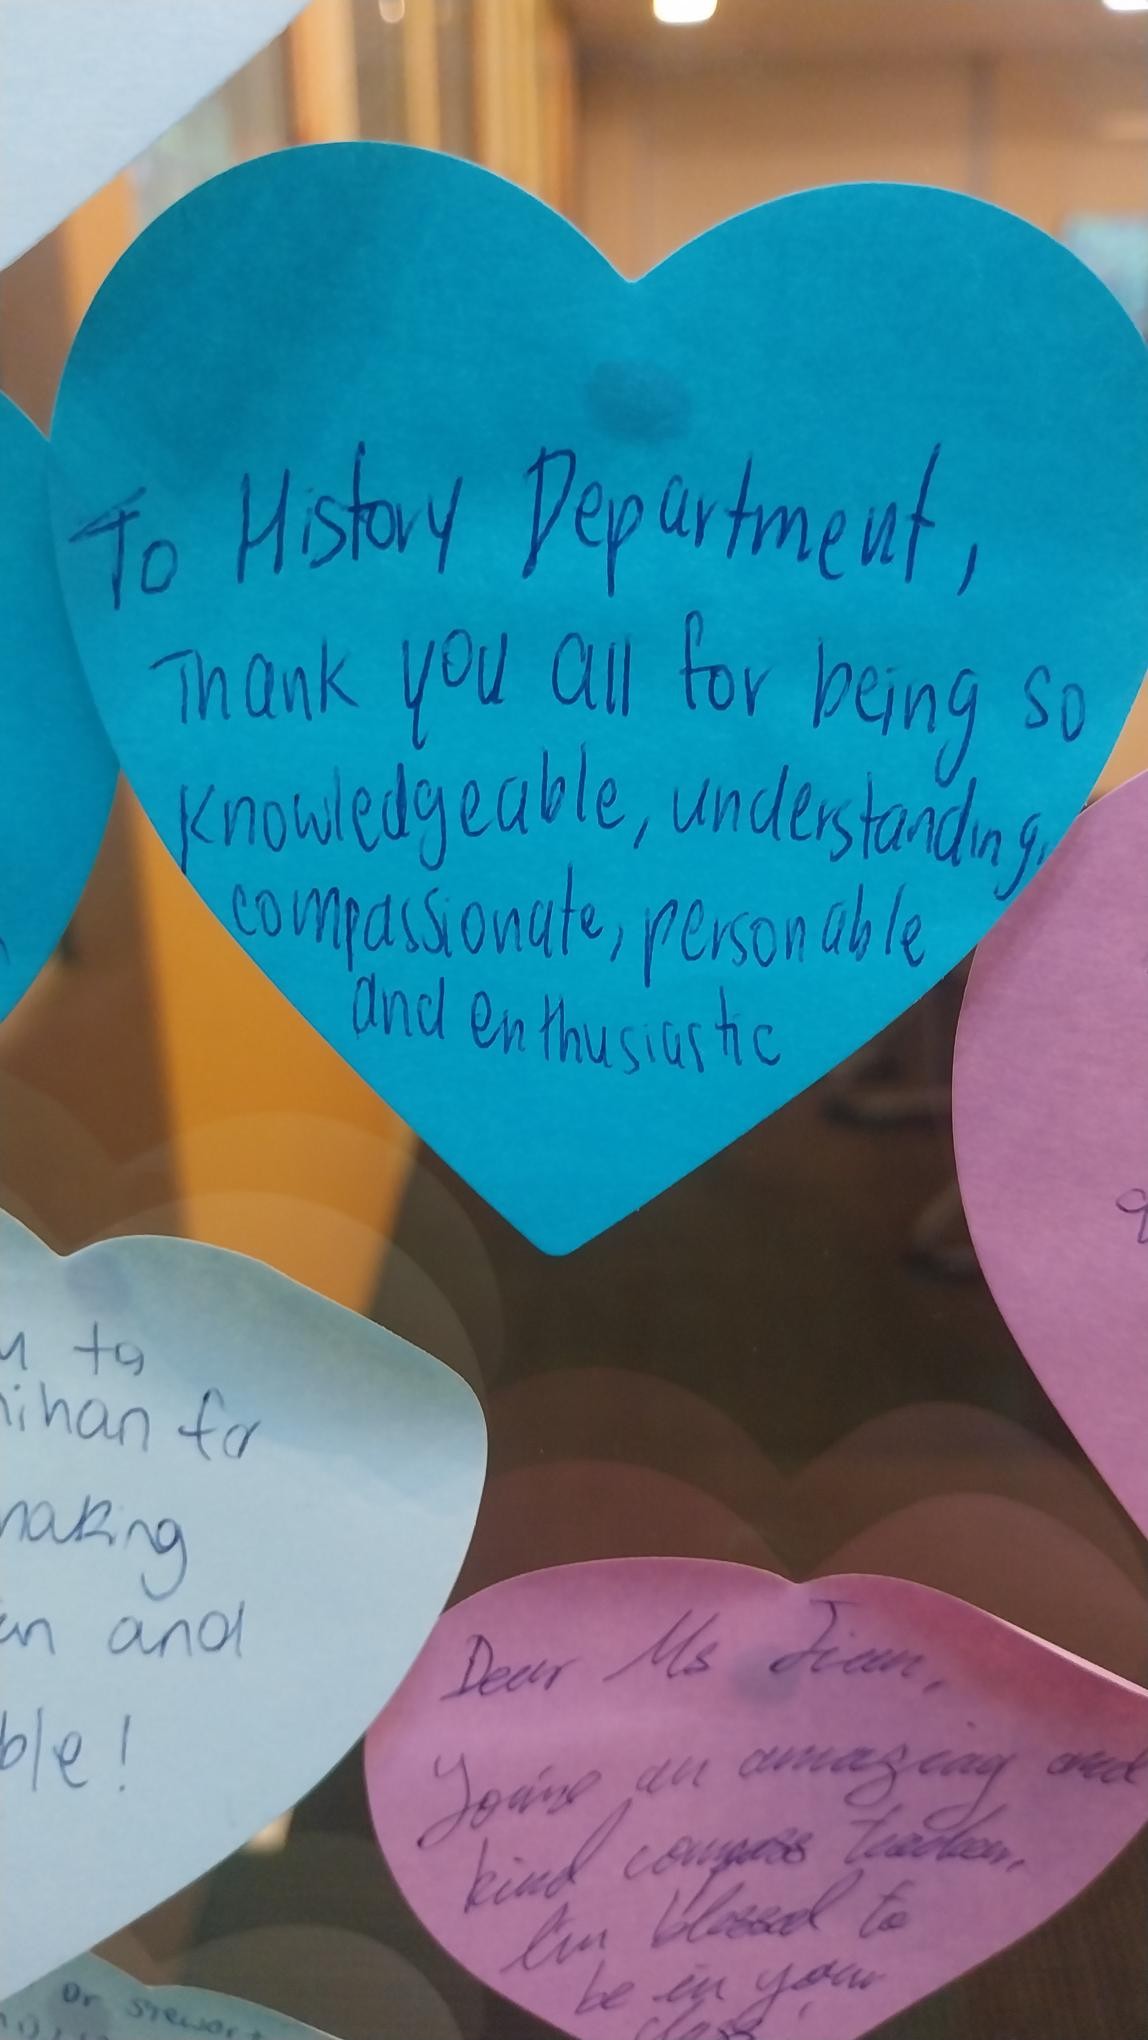 To History Department,
Thank you all for being so
knowledgeable, understanding,
compassionate, personable
and enthusiastic
to
for
making
and
Dear Ms Jian,
You're an amazing and
kind compass teacher.
I'm blessed to
be in your
class!
Dr Stewart